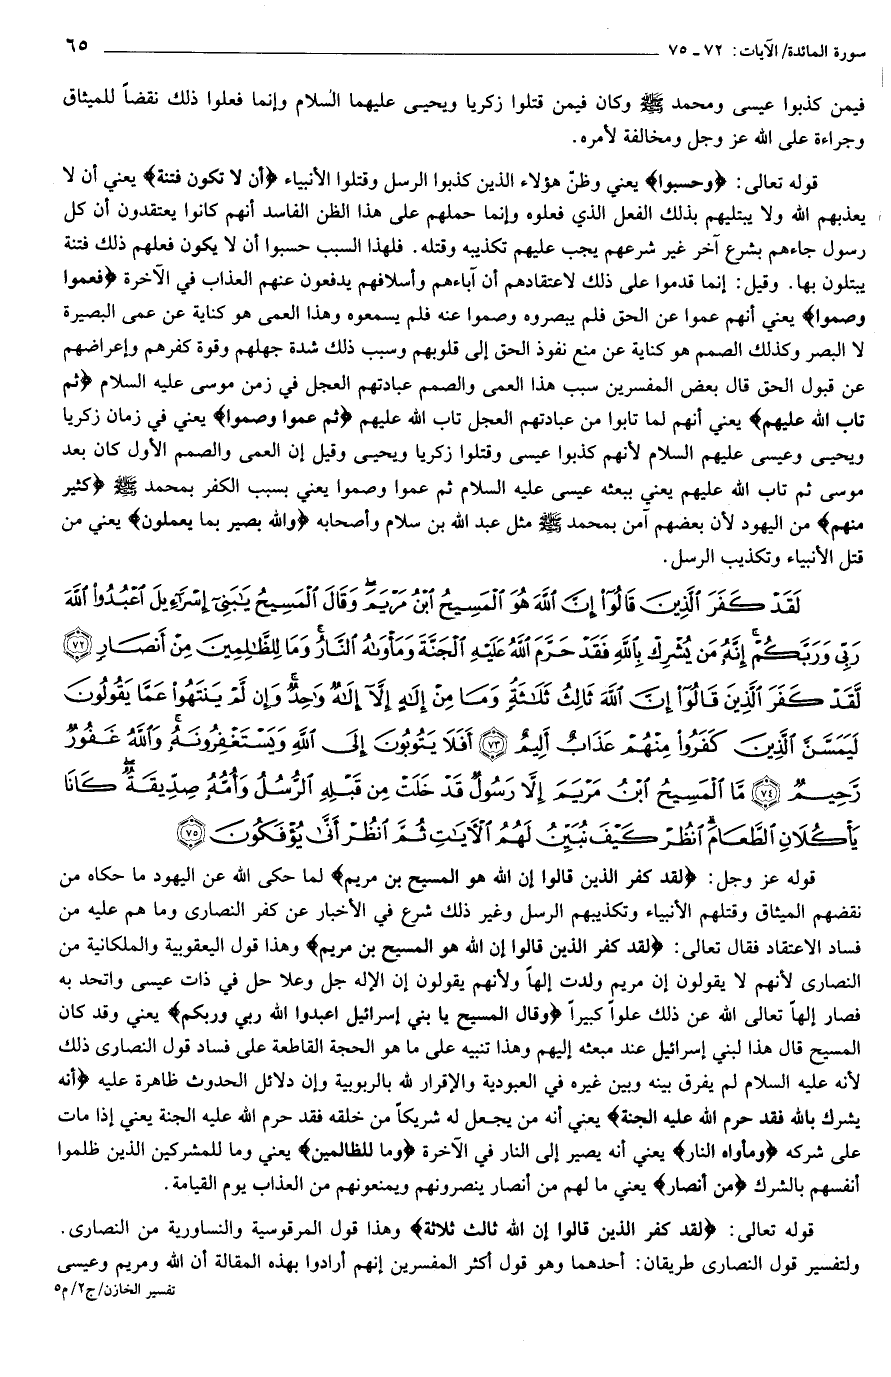 سورة المائدة/ الآيات: ٧٢ ـ ٧٥ ٦٥
فيمن كذبوا عيسى ومحمد ﷺ وكان فيمن قتلوا زكريا ويحيى عليهما السلام وإنما فعلوا ذلك نقضاً للميثاق
وجراءة على الله عز وجل ومخالفة لأمره.
قوله تعالى: ﴿وحسبوا﴾ يعني وظنّ هؤلاء الذين كذبوا الرسل وقتلوا الأنبياء ﴿أن لا تكون فتنة﴾ يعني أن لا
يعذبهم الله ولا يبتليهم بذلك الفعل الذي فعلوه وإنما حملهم على هذا الظن الفاسد أنهم كانوا يعتقدون أن كل
رسول جاءهم بشرع آخر غير شرعهم يجب عليهم تكذيبه وقتله. فلهذا السبب حسبوا أن لا يكون فعلهم ذلك فتنة
يبتلون بها. وقيل: إنما قدموا على ذلك لاعتقادهم أن آباءهم وأسلافهم يدفعون عنهم العذاب في الآخرة ﴿فعموا
وصموا﴾ يعني أنهم عموا عن الحق فلم يبصروه وصموا عنه فلم يسمعوه وهذا العمى هو كناية عن عمى البصيرة
لا البصر وكذلك الصمم هو كناية عن منع نفوذ الحق إلى قلوبهم وسبب ذلك شدة جهلهم وقوة كفرهم وإعراضهم
عن قبول الحق قال بعض المفسرين سبب هذا العمى والصمم عبادتهم العجل في زمن موسى عليه السلام ﴿ثم
تاب الله عليهم﴾ يعني أنهم لما تابوا من عبادتهم العجل تاب الله عليهم ﴿ثم عموا وصموا﴾ يعني في زمان زكريا
ويحيى وعيسى عليهم السلام لأنهم كذبوا عيسى وقتلوا زكريا ويحيى وقيل إن العمى والصمم الأول كان بعد
موسى ثم تاب الله عليهم يعني ببعثه عيسى عليه السلام ثم عموا وصموا يعني بسبب الكفر بمحمد ﷺ ﴿كثير
منهم﴾ من اليهود لأن بعضهم آمن بمحمد ﷺ مثل عبد الله بن سلام وأصحابه ﴿والله بصير بما يعملون﴾ يعني من
قتل الأنبياء وتكذيب الرسل.
لَقَدْ كَفَرَ ٱلَّذِينَ قَالُوٓا۟ إِنَّ ٱللَّهَ هُوَ ٱلْمَسِيحُ ٱبْنُ مَرْيَمَ ۖ وَقَالَ ٱلْمَسِيحُ يَٰبَنِىٓ إِسْرَٰٓءِيلَ ٱعْبُدُوا۟ ٱللَّهَ
رَبِّى وَرَبَّكُمْ ۖ إِنَّهُۥ مَن يُشْرِكْ بِٱللَّهِ فَقَدْ حَرَّمَ ٱللَّهُ عَلَيْهِ ٱلْجَنَّةَ وَمَأْوَىٰهُ ٱلنَّارُ ۖ وَمَا لِلظَّٰلِمِينَ مِنْ أَنصَارٍ ﴿٧٢﴾
لَّقَدْ كَفَرَ ٱلَّذِينَ قَالُوٓا۟ إِنَّ ٱللَّهَ ثَالِثُ ثَلَٰثَةٍ ۘ وَمَا مِنْ إِلَٰهٍ إِلَّآ إِلَٰهٌ وَٰحِدٌ ۚ وَإِن لَّمْ يَنتَهُوا۟ عَمَّا يَقُولُونَ
لَيَمَسَّنَّ ٱلَّذِينَ كَفَرُوا۟ مِنْهُمْ عَذَابٌ أَلِيمٌ ﴿٧٣﴾ أَفَلَا يَتُوبُونَ إِلَى ٱللَّهِ وَيَسْتَغْفِرُونَهُۥ ۚ وَٱللَّهُ غَفُورٌ
رَّحِيمٌ ﴿٧٤﴾ مَّا ٱلْمَسِيحُ ٱبْنُ مَرْيَمَ إِلَّا رَسُولٌ قَدْ خَلَتْ مِن قَبْلِهِ ٱلرُّسُلُ وَأُمُّهُۥ صِدِّيقَةٌ ۖ كَانَا
يَأْكُلَانِ ٱلطَّعَامَ ۗ ٱنظُرْ كَيْفَ نُبَيِّنُ لَهُمُ ٱلْءَايَٰتِ ثُمَّ ٱنظُرْ أَنَّىٰ يُؤْفَكُونَ ﴿٧٥﴾
قوله عز وجل: ﴿لقد كفر الذين قالوا إن الله هو المسيح بن مريم﴾ لما حكى الله عن اليهود ما حكاه من
نقضهم الميثاق وقتلهم الأنبياء وتكذيبهم الرسل وغير ذلك شرع في الأخبار عن كفر النصارى وما هم عليه من
فساد الاعتقاد فقال تعالى: ﴿لقد كفر الذين قالوا إن الله هو المسيح بن مريم﴾ وهذا قول اليعقوبية والملكانية من
النصارى لأنهم لا يقولون إن مريم ولدت إلهاً ولأنهم يقولون إن الإله جل وعلا حل في ذات عيسى واتحد به
فصار إلهاً تعالى الله عن ذلك علواً كبيراً ﴿وقال المسيح يا بني إسرائيل اعبدوا الله ربي وربكم﴾ يعني وقد كان
المسيح قال هذا لبني إسرائيل عند مبعثه إليهم وهذا تنبيه على ما هو الحجة القاطعة على فساد قول النصارى ذلك
لأنه عليه السلام لم يفرق بينه وبين غيره في العبودية والإقرار لله بالربوبية وإن دلائل الحدوث ظاهرة عليه ﴿أنه
يشرك بالله فقد حرم الله عليه الجنة﴾ يعني أنه من يجعل له شريكاً من خلقه فقد حرم الله عليه الجنة يعني إذا مات
على شركه ﴿ومأواه النار﴾ يعني أنه يصير إلى النار في الآخرة ﴿وما للظالمين﴾ يعني وما للمشركين الذين ظلموا
أنفسهم بالشرك ﴿من أنصار﴾ يعني ما لهم من أنصار ينصرونهم ويمنعونهم من العذاب يوم القيامة.
قوله تعالى: ﴿لقد كفر الذين قالوا إن الله ثالث ثلاثة﴾ وهذا قول المرقوسية والنساورية من النصارى.
ولتفسير قول النصارى طريقان: أحدهما وهو قول أكثر المفسرين إنهم أرادوا بهذه المقالة أن الله ومريم وعيسى
تفسير الخازن/ج٢/م٥